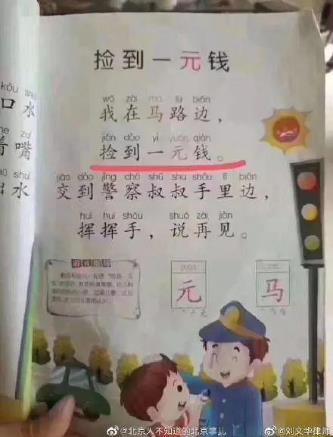 口水
着嘴
出水
捡到一元钱
wǒ zài mǎ lù biān
我在马路边，
jiǎn dào yì yuán qián
捡到一元钱。
jiāo dào jǐng chá shū shu shǒu lǐ biān
交到警察叔叔手里边，
huī huī shǒu shuō zài jiàn
挥挥手，说再见。
元
马
@北京人不知道的北京事儿
@刘文华律师